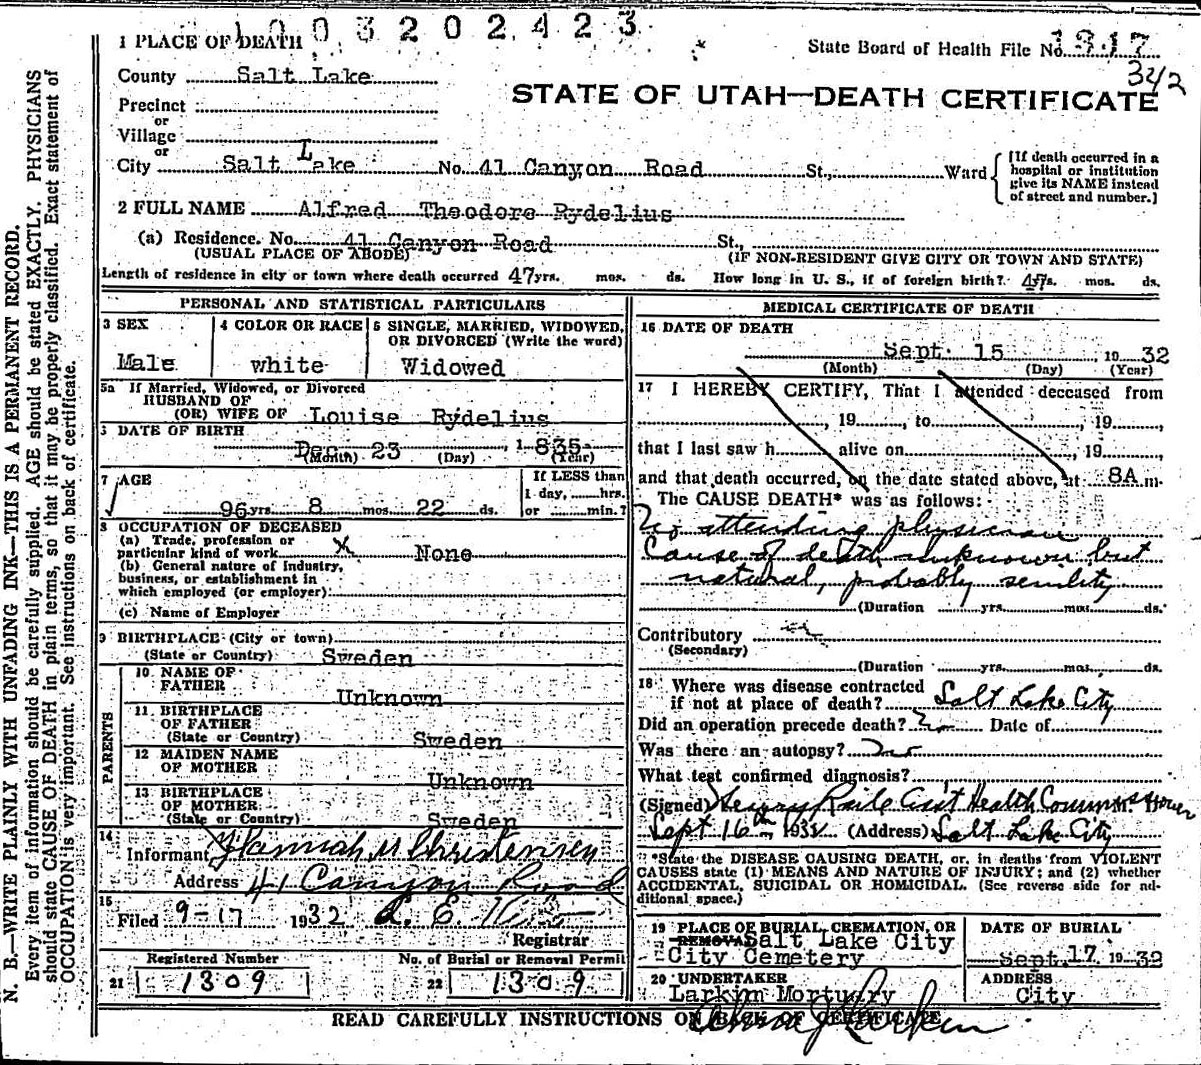 1003202423
1 PLACE OF DEATH
State Board of Health File No. 1317
342
County Salt Lake
STATE OF UTAH—DEATH CERTIFICATE
Precinct
or
Village
or
City Salt Lake No. 41 Canyon Road St., Ward
[If death occurred in a hospital or institution give its NAME instead of street and number.]
2 FULL NAME Alfred Theodore Rydelius
(a) Residence. No. 41 Canyon Road St.,
(USUAL PLACE OF ABODE) (IF NON-RESIDENT GIVE CITY OR TOWN AND STATE)
Length of residence in city or town where death occurred 47 yrs. mos. ds. How long in U. S., if of foreign birth? 47 yrs. mos. ds.
PERSONAL AND STATISTICAL PARTICULARS
3 SEX
Male
4 COLOR OR RACE
white
5 SINGLE, MARRIED, WIDOWED, OR DIVORCED (Write the word)
Widowed
5a If Married, Widowed, or Divorced
HUSBAND OF
(OR) WIFE OF Louise Rydelius
DATE OF BIRTH
Dec 23 1835
(Month) (Day) (Year)
7 AGE
96 yrs. 8 mos. 22 ds.
If LESS than
1 day, hrs.
or min.?
8 OCCUPATION OF DECEASED
(a) Trade, profession or
particular kind of work X None
(b) General nature of Industry,
business, or establishment in
which employed (or employer)
(c) Name of Employer
9 BIRTHPLACE (City or town)
(State or Country) Sweden
PARENTS
10 NAME OF
FATHER Unknown
11 BIRTHPLACE
OF FATHER
(State or Country) Sweden
12 MAIDEN NAME
OF MOTHER Unknown
13 BIRTHPLACE
OF MOTHER
(State or Country) Sweden
14
Informant Hannah M Christensen
Address 41 Canyon Road
15
Filed 9-17 1932
Registrar
Registered Number
21 1309
No. of Burial or Removal Permit
22 1309
MEDICAL CERTIFICATE OF DEATH
16 DATE OF DEATH
Sept. 15 19 32
(Month) (Day) (Year)
17 I HEREBY CERTIFY, That I attended deceased from
, 19 , to , 19 ,
that I last saw h alive on , 19
and that death occurred, on the date stated above, at 8A m.
The CAUSE DEATH* was as follows:
No attending physician
Cause of death unknown but
natural, probably senility
(Duration yrs. mos. ds.
Contributory
(Secondary)
(Duration yrs. mos. ds.
18 Where was disease contracted
if not at place of death? Salt Lake City
Did an operation precede death? No Date of
Was there an autopsy? No
What test confirmed diagnosis?
(Signed) Henry Raile Asst Health Commissioner
Sept 16th 1932 (Address) Salt Lake City
*State the DISEASE CAUSING DEATH, or, in deaths from VIOLENT
CAUSES state (1) MEANS AND NATURE OF INJURY; and (2) whether
ACCIDENTAL, SUICIDAL OR HOMICIDAL. (See reverse side for additional space.)
19 PLACE OF BURIAL, CREMATION, OR
REMOVAL Salt Lake City
City Cemetery
DATE OF BURIAL
Sept. 17 19 32
20 UNDERTAKER
Larkin Mortuary
ADDRESS
City
READ CAREFULLY INSTRUCTIONS ON BACK OF CERTIFICATE
N. B.—WRITE PLAINLY WITH UNFADING INK—THIS IS A PERMANENT RECORD.
Every item of information should be carefully supplied. AGE should be stated EXACTLY. PHYSICIANS
should state CAUSE OF DEATH in plain terms, so that it may be properly classified. Exact statement of
OCCUPATION is very important. See instructions on back of certificate.